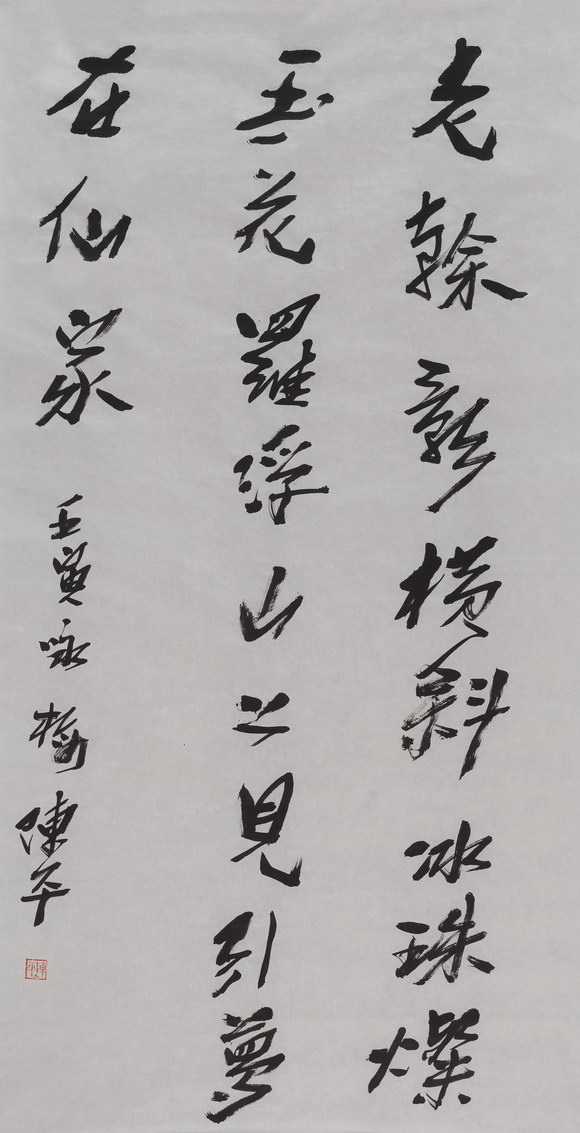 老榦横斜冰珠燦
玉花羅浮山上見引夢
在仙家
壬寅咏梅 陳平